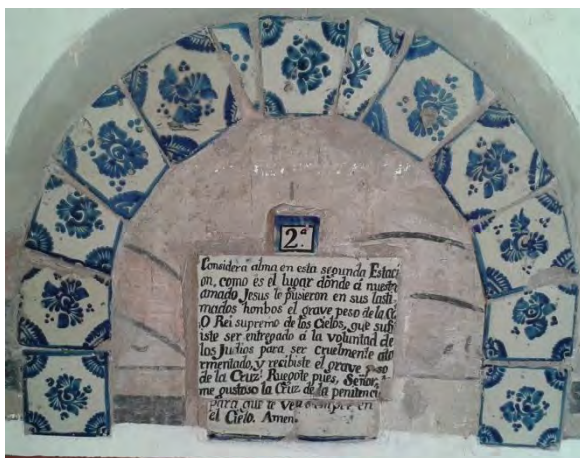 2ª
Considera alma en esta segunda Estaci
on, como es el lugar donde á nuestr
amado Jesus le pusieron en sus lasti-
mados honbos el grave peso de la C
O Rei supremo de los Cielos, que suf
iste ser entregado á la voluntad de
los Judios para ser cruelmente ato
rmentado, y recibiste el grave peso
de la Cruz! Ruegote pues, Señor,
me gustoso la Cruz de la penitenci
para que te
en
el Cielo. Amen.